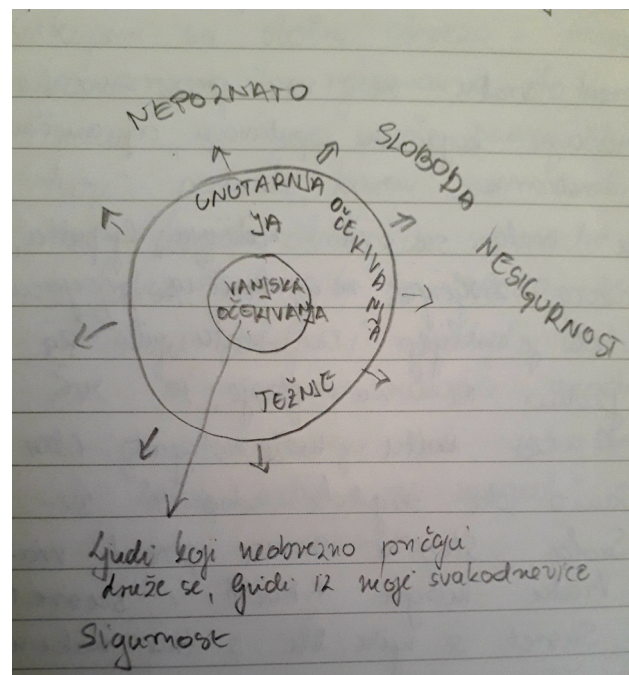 NEPOZNATO
SLOBODA
NESIGURNOST
UNUTARNJA
JA
OČEKIVANJA
VANJSKA
OČEKIVANJA
TEŽNJE
Ljudi koji neobvezno pričaju
druže se, ljudi iz moje svakodnevice
Sigurnost